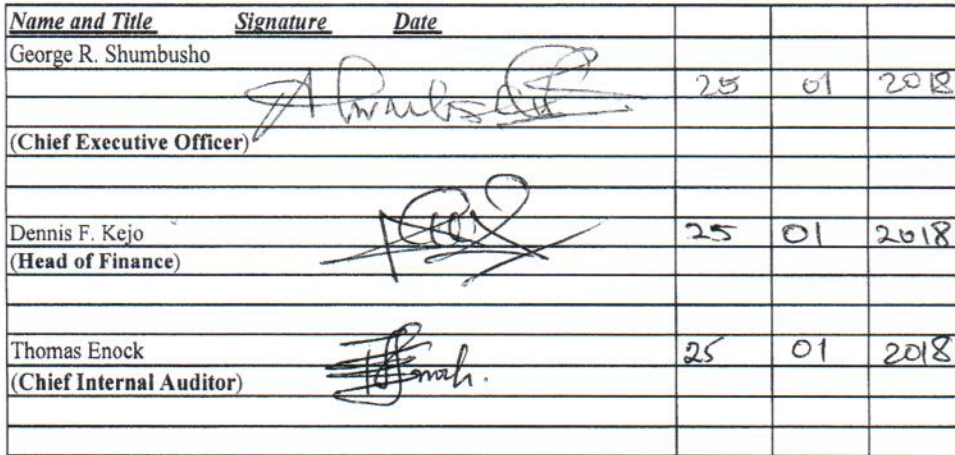 Name and Title Signature Date
George R. Shumbusho
25 01 2018
(Chief Executive Officer)
Dennis F. Kejo 25 01 2018
(Head of Finance)
Thomas Enock 25 01 2018
(Chief Internal Auditor)